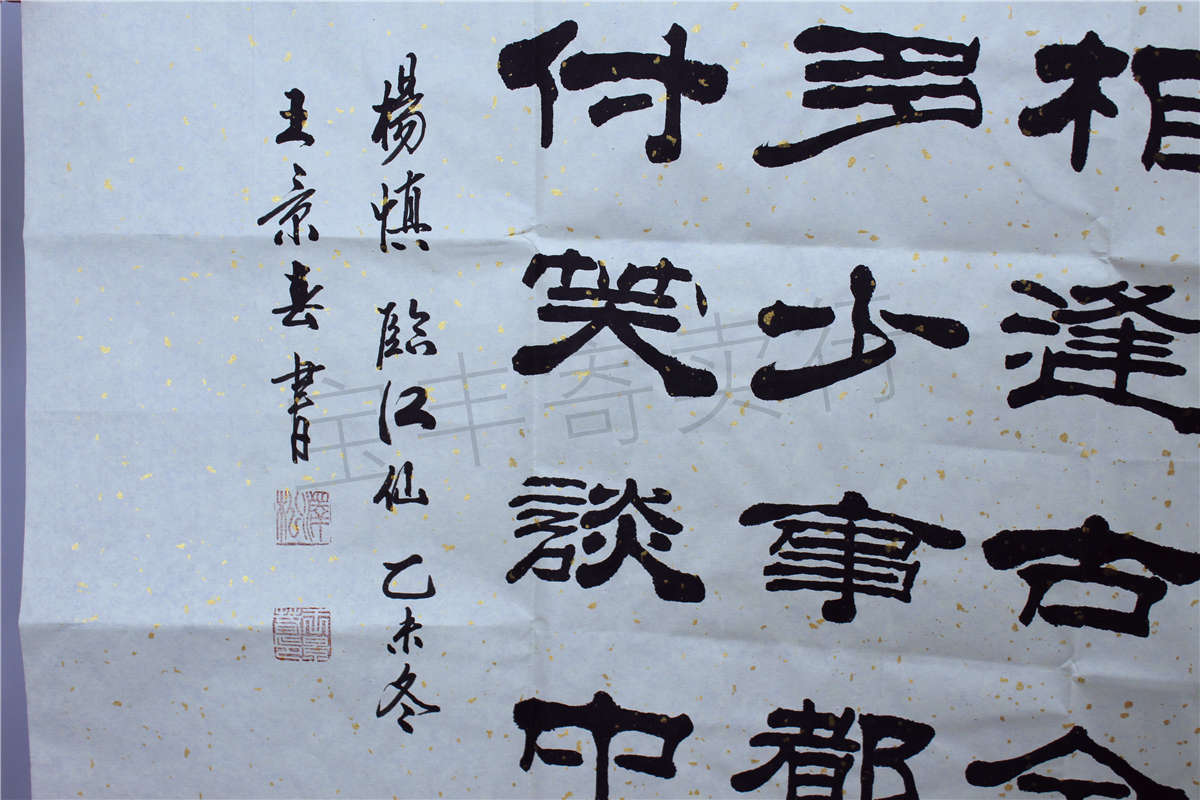 相逢古今
多少事都
付笑談中
楊慎 臨江仙 乙未冬
王景春書
澤松
宝丰寄卖行